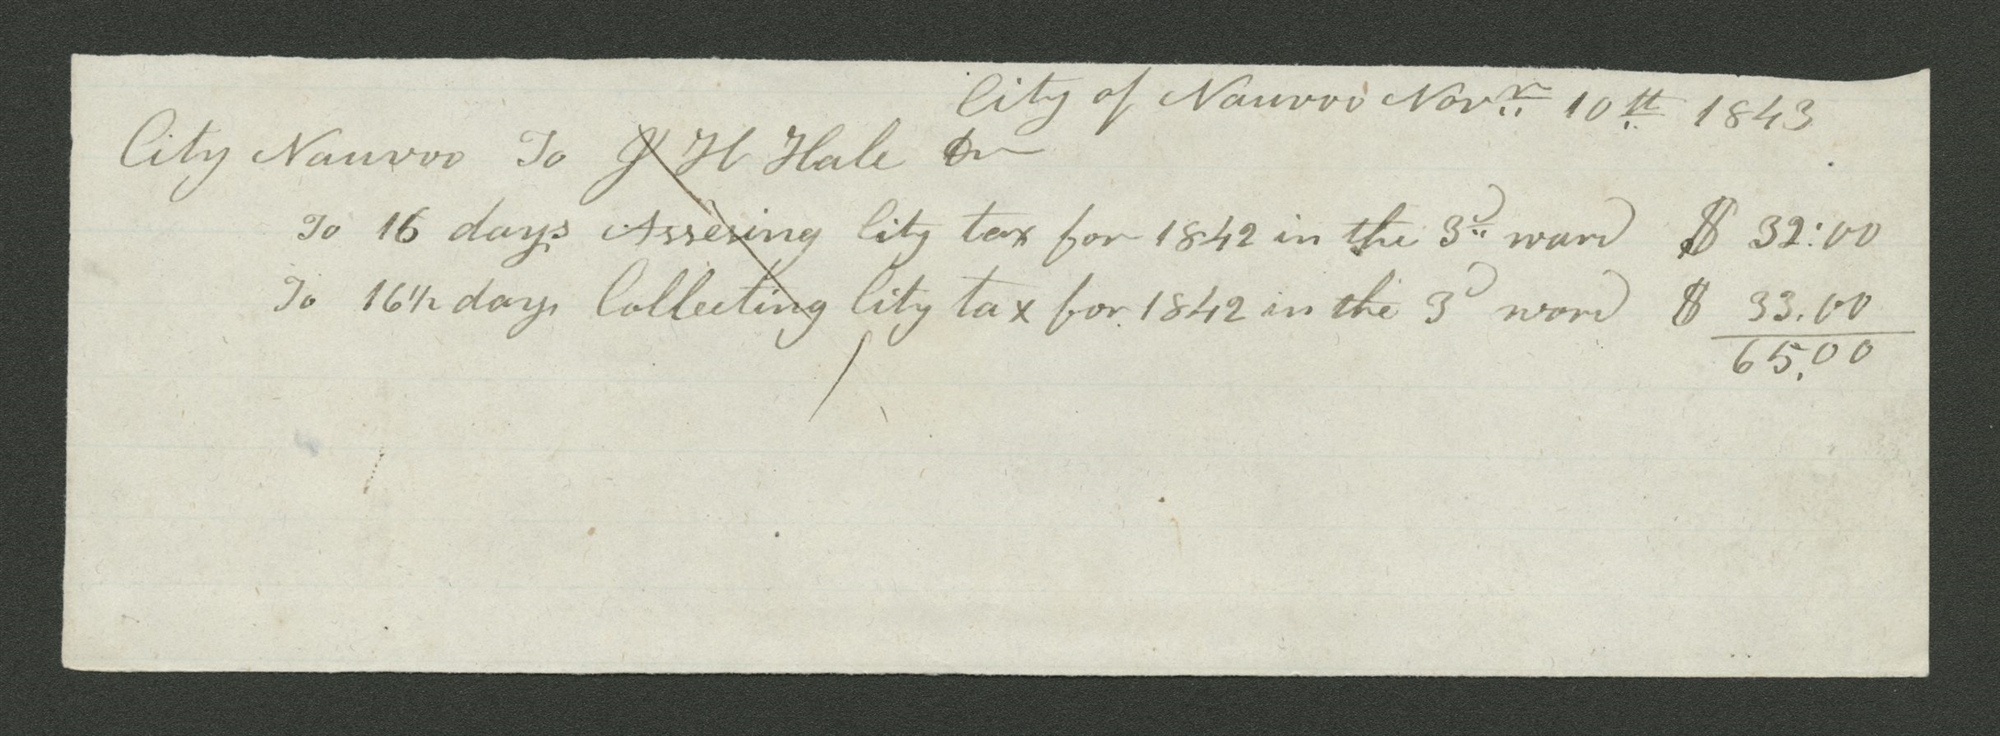 City of Nauvoo Novr 10th 1843
City Nauvoo To J H Hale Dr
To 16 days Assesing City tax for 1842 in the 3d ward $ 32:00
To 16½ days Collecting City tax for 1842 in the 3d ward $ 33.00
65,00